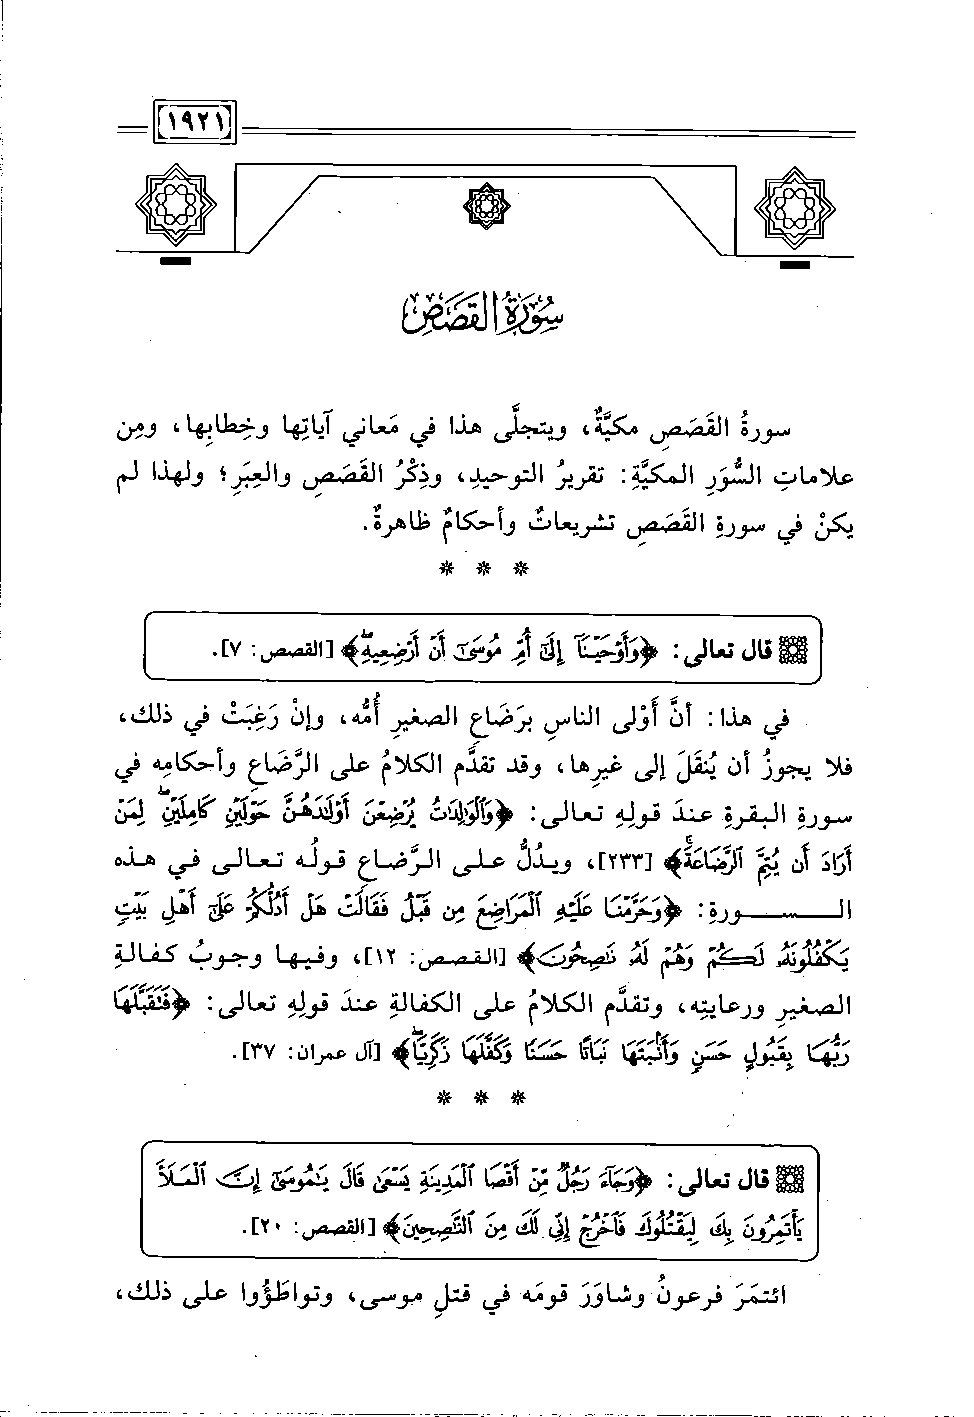 ١٩٢١
سُورَةُ القَصَصِ
سورةُ القَصَصِ مكيَّةٌ، ويتجلَّى هذا في مَعاني آياتِها وخِطابِها، ومِن
علاماتِ السُّوَرِ المكيَّةِ: تقريرُ التوحيدِ، وذِكْرُ القَصَصِ والعِبَرِ؛ ولهذا لم
يكنْ في سورةِ القَصَصِ تشريعاتٌ وأحكامٌ ظاهرةٌ.
* * *
قال تعالى: ﴿وَأَوْحَيْنَآ إِلَىٰٓ أُمِّ مُوسَىٰٓ أَنْ أَرْضِعِيهِۖ﴾ [القصص: ٧].
في هذا: أنَّ أَوْلى الناسِ برَضَاعِ الصغيرِ أُمُّه، وإنْ رَغِبَتْ في ذلك،
فلا يجوزُ أن يُنقَلَ إلى غيرِها، وقد تقدَّم الكلامُ على الرَّضَاعِ وأحكامِه في
سورةِ البقرةِ عندَ قولِهِ تعالى: ﴿وَٱلْوَٰلِدَٰتُ يُرْضِعْنَ أَوْلَٰدَهُنَّ حَوْلَيْنِ كَامِلَيْنِۖ لِمَنْ
أَرَادَ أَن يُتِمَّ ٱلرَّضَاعَةَۚ﴾ [٢٣٣]، ويدُلُّ على الرَّضاعِ قولُه تعالى في هذه
السورةِ: ﴿وَحَرَّمْنَا عَلَيْهِ ٱلْمَرَاضِعَ مِن قَبْلُ فَقَالَتْ هَلْ أَدُلُّكُمْ عَلَىٰٓ أَهْلِ بَيْتٍ
يَكْفُلُونَهُۥ لَكُمْ وَهُمْ لَهُۥ نَٰصِحُونَ﴾ [القصص: ١٢]، وفيها وجوبُ كفالةِ
الصغيرِ ورعايتِه، وتقدَّم الكلامُ على الكفالةِ عندَ قولِهِ تعالى: ﴿فَتَقَبَّلَهَا
رَبُّهَا بِقَبُولٍ حَسَنٍ وَأَنۢبَتَهَا نَبَاتًا حَسَنًا وَكَفَّلَهَا زَكَرِيَّاۖ﴾ [آل عمران: ٣٧].
* * *
قال تعالى: ﴿وَجَآءَ رَجُلٌ مِّنْ أَقْصَا ٱلْمَدِينَةِ يَسْعَىٰ قَالَ يَٰمُوسَىٰٓ إِنَّ ٱلْمَلَأَ
يَأْتَمِرُونَ بِكَ لِيَقْتُلُوكَ فَٱخْرُجْ إِنِّي لَكَ مِنَ ٱلنَّٰصِحِينَ﴾ [القصص: ٢٠].
ائتمَرَ فرعونُ وشاوَرَ قومَه في قتلِ موسى، وتواطَؤُوا على ذلك،